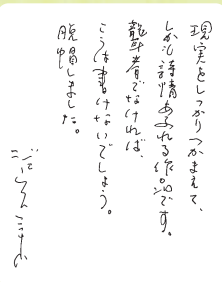 現実をしっかりつかまえて、
しかも詩情あふれる作品です。
龍之介でなければ、
こうは書けないでしょう。
脱帽しました。